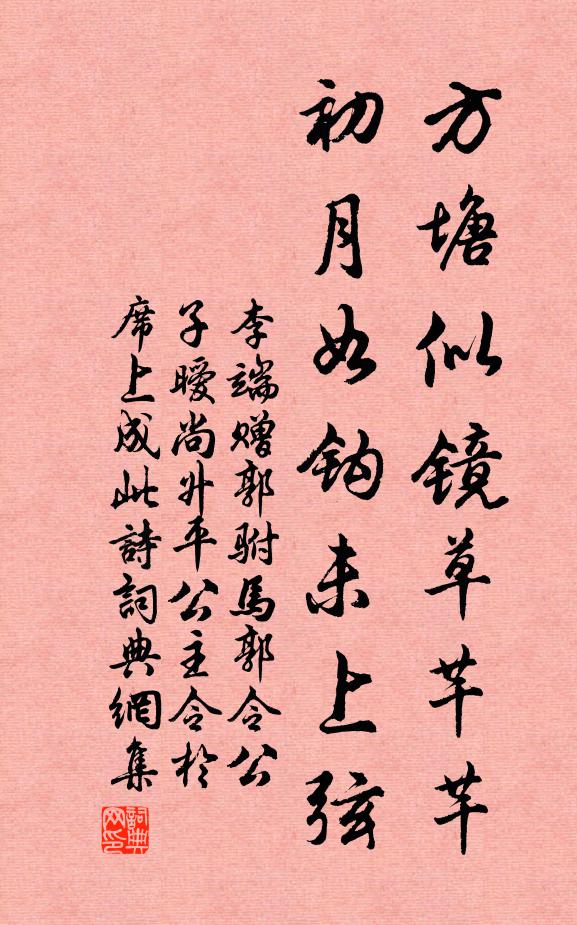 方塘似鏡草芊芊
初月如鈎未上弦
李端贈郭駙馬郭令公
子曖尚升平公主令於
席上成此詩詞典網集
詞典网印